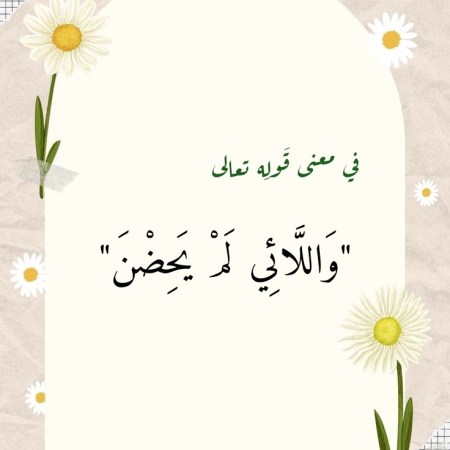 في معنى قَولِه تعالى
"وَاللَّائِي لَمْ يَحِضْنَ"